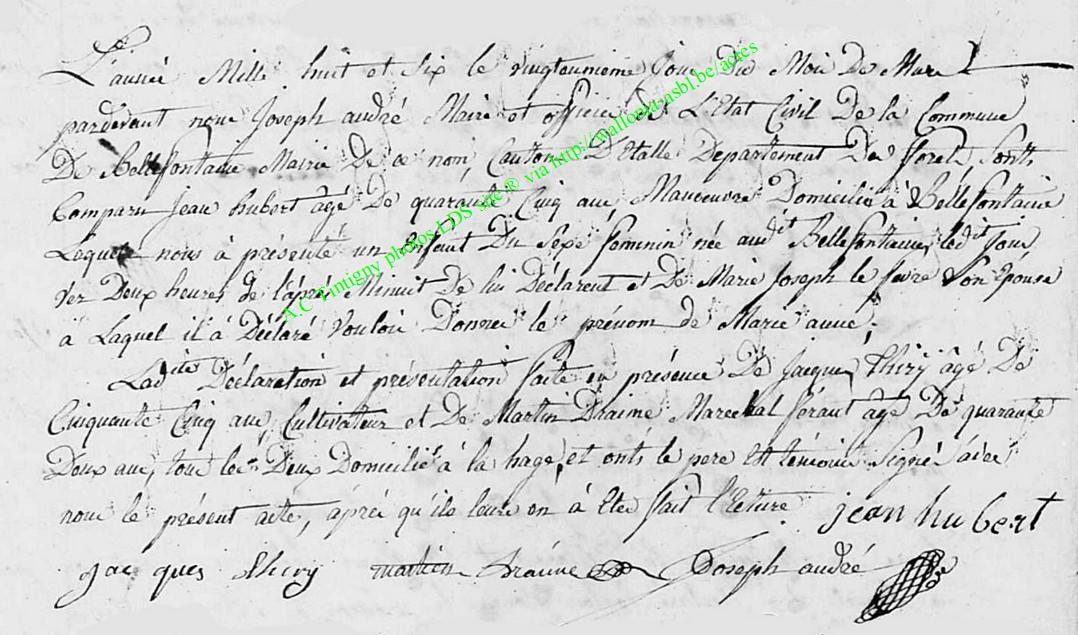 L'année Mille huit et Six le vingteunieme Jour Du Moi De Mars
pardevant nous Joseph andré Maire et officier De L'Etat Civil De la Commune
De Bellefontaine Mairie De ce nom, Canton D'Etalle Departement Des forets Sont
Comparu Jean hubert âgé De quarante Cinq ans, Manoeuvre Domicilié à Bellefontaine
Lequel nous à présenté un Enfant Du Sexe feminin née audit Bellefontaine, ledit Jour
Ver Deux heures de l'aprés Minuit De lui Déclarent et De Marie Joseph le fevre Son Epouse
à Laquel il à Déclaré Vouloir Donner le prénom de Marie anne;
Ladite Déclaration et présentation faite en présence De Jacques Thiry âgé De
Cinquante Cinq ans, Cultivateur et De Martin Draime Marechal ferant âgé De quarante
Deux ans, tous les Deux Domicilié à la hage, et onts le pere Et témoins Signé avec
nous le présent acte, aprés qu'ils leurs on à Eté fait l'Ecture jean hubert
Jacques thiry martin Draime Joseph andré
A.C Tintigny photos LDS site ® via http://wallonia-nsbl.be/actes